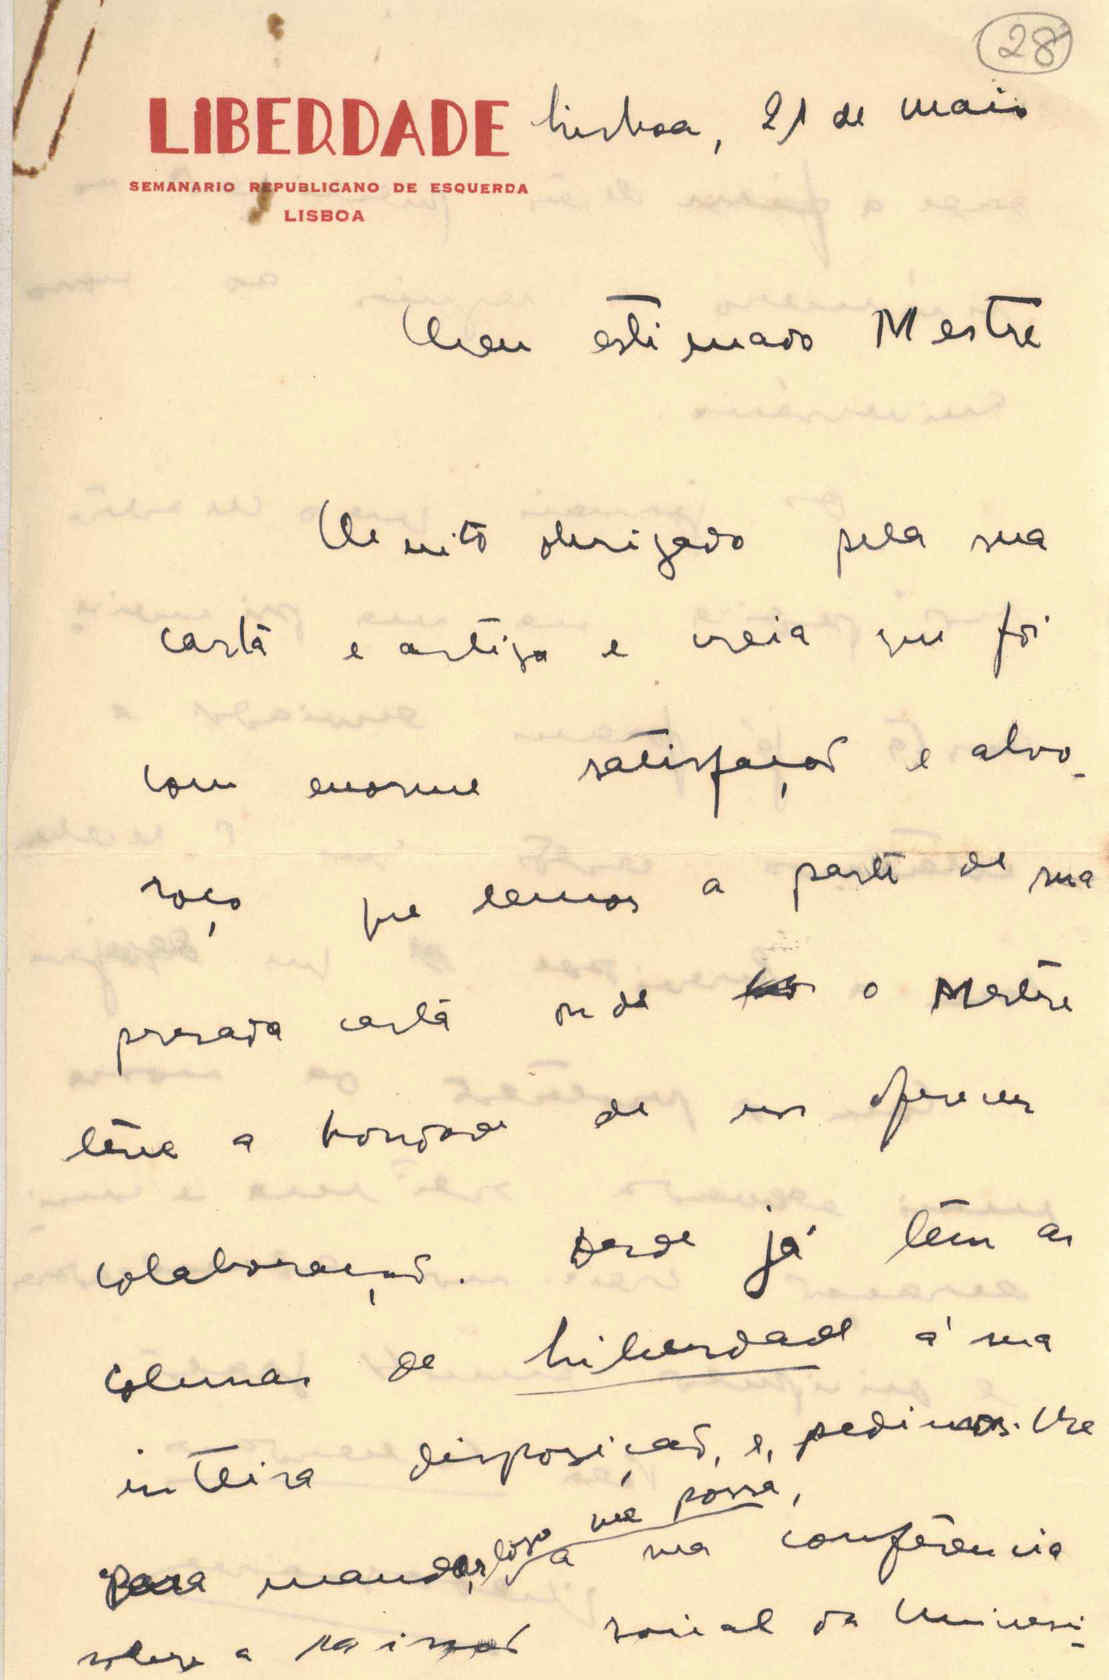 28
LIBERDADE Lisboa, 21 de maio
SEMANARIO REPUBLICANO DE ESQUERDA
LISBOA
Meu estimado Mestre
Muito obrigado pela sua
carta e artigo e creia que foi
com enorme satisfação e alvo-
roço que lemos a parte de sua
presada carta onde o Mestre
têve a bondade de nos oferecer
colaboração. Desde já têm as
colunas de Liberdade á sua
inteira disposição, e, pedimos-lhe
para mandar, logo que possa,
a sua conferência
sobre a social da Universi-